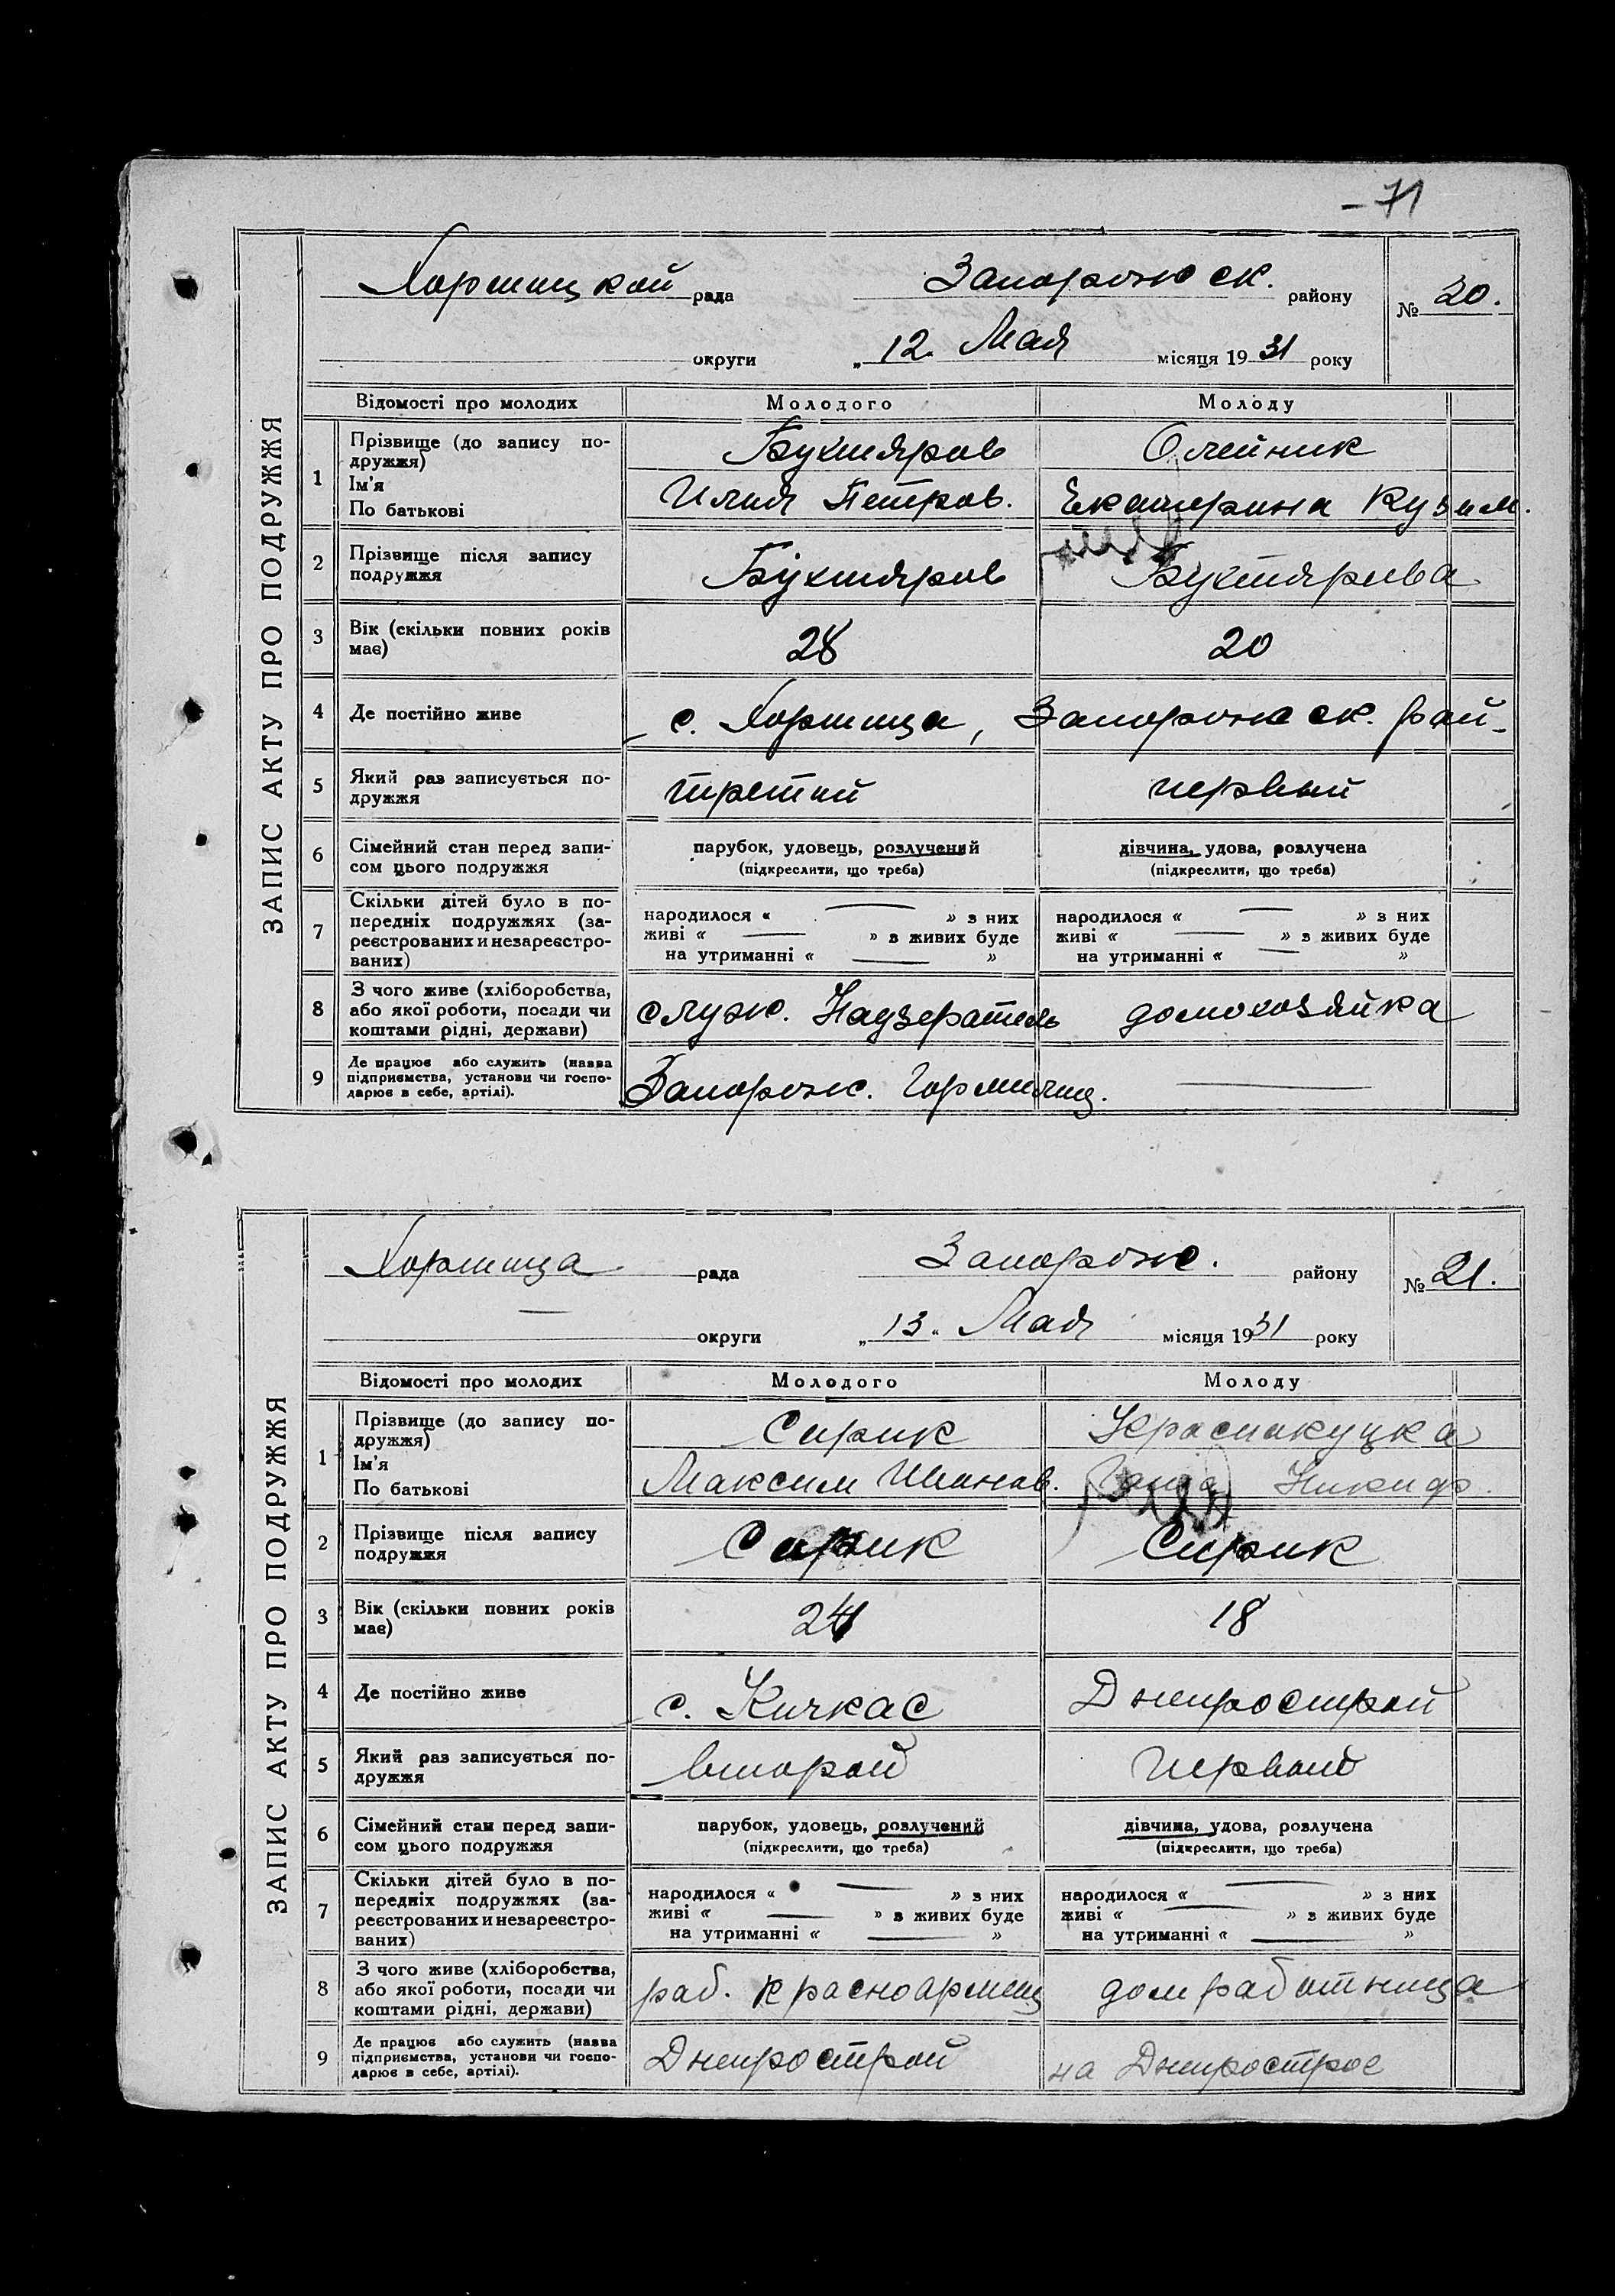 – 71
ЗАПИС АКТУ ПРО ПОДРУЖЖЯ
Хортицкой рада Запорожск. району № 20.
округи „ 12. Мая місяця 19 31 року
Відомості про молодих Молодого Молоду
1 Прізвище (до запису по-
дружжя) Бухтяров Олейник
Ім'я
По батькові Илия Петров. Екатерина Кузьм.
2 Прізвище після запису
подружжя Бухтяров Бухтярова
3 Вік (скільки повних років
має) 28 20
4 Де постійно живе с. Хортица, Запорожск. рай-
5 Який раз записується по-
дружжя третий первый
6 Сімейний стан перед запи-
сом цього подружжя парубок, удовець, розлучений дівчина, удова, розлучена
(підкреслити, що треба) (підкреслити, що треба)
7 Скільки дітей було в по-
передніх подружжях (за-
реєстрованих и незареєстро-
ваних)
народилося « — » з них народилося « — » з них
живі « — » в живих буде живі « — » в живих буде
на утриманні « — » на утриманні « — »
8 З чого живе (хліборобства,
або якої роботи, посади чи
коштами рідні, держави) служ. Надзератель домохозяйка
9 Де працює або служить (назва
підприємства, установи чи госпо-
дарює в себе, артілі). Запорож. Гормилиц. —
ЗАПИС АКТУ ПРО ПОДРУЖЖЯ
Хортица рада Запорож. району № 21.
— округи „ 13 " Мая місяця 19 31 року
Відомості про молодих Молодого Молоду
1 Прізвище (до запису по-
дружжя) Сирик Краснокуцка
Ім'я
По батькові Максим Иванов. Никиф.
2 Прізвище після запису
подружжя Сирик Сирик
3 Вік (скільки повних років
має) 24 18
4 Де постійно живе с. Кичкас Днепрострой
5 Який раз записується по-
дружжя второй первый
6 Сімейний стан перед запи-
сом цього подружжя парубок, удовець, розлучений дівчина, удова, розлучена
(підкреслити, що треба) (підкреслити, що треба)
7 Скільки дітей було в по-
передніх подружжях (за-
реєстрованих и незареєстро-
ваних)
народилося « — » з них народилося « — » з них
живі « — » в живих буде живі « — » в живих буде
на утриманні « — » на утриманні « — »
8 З чого живе (хліборобства,
або якої роботи, посади чи
коштами рідні, держави) раб. красноармеец домработница
9 Де працює або служить (назва
підприємства, установи чи госпо-
дарює в себе, артілі). Днепрострой на Днепрострое